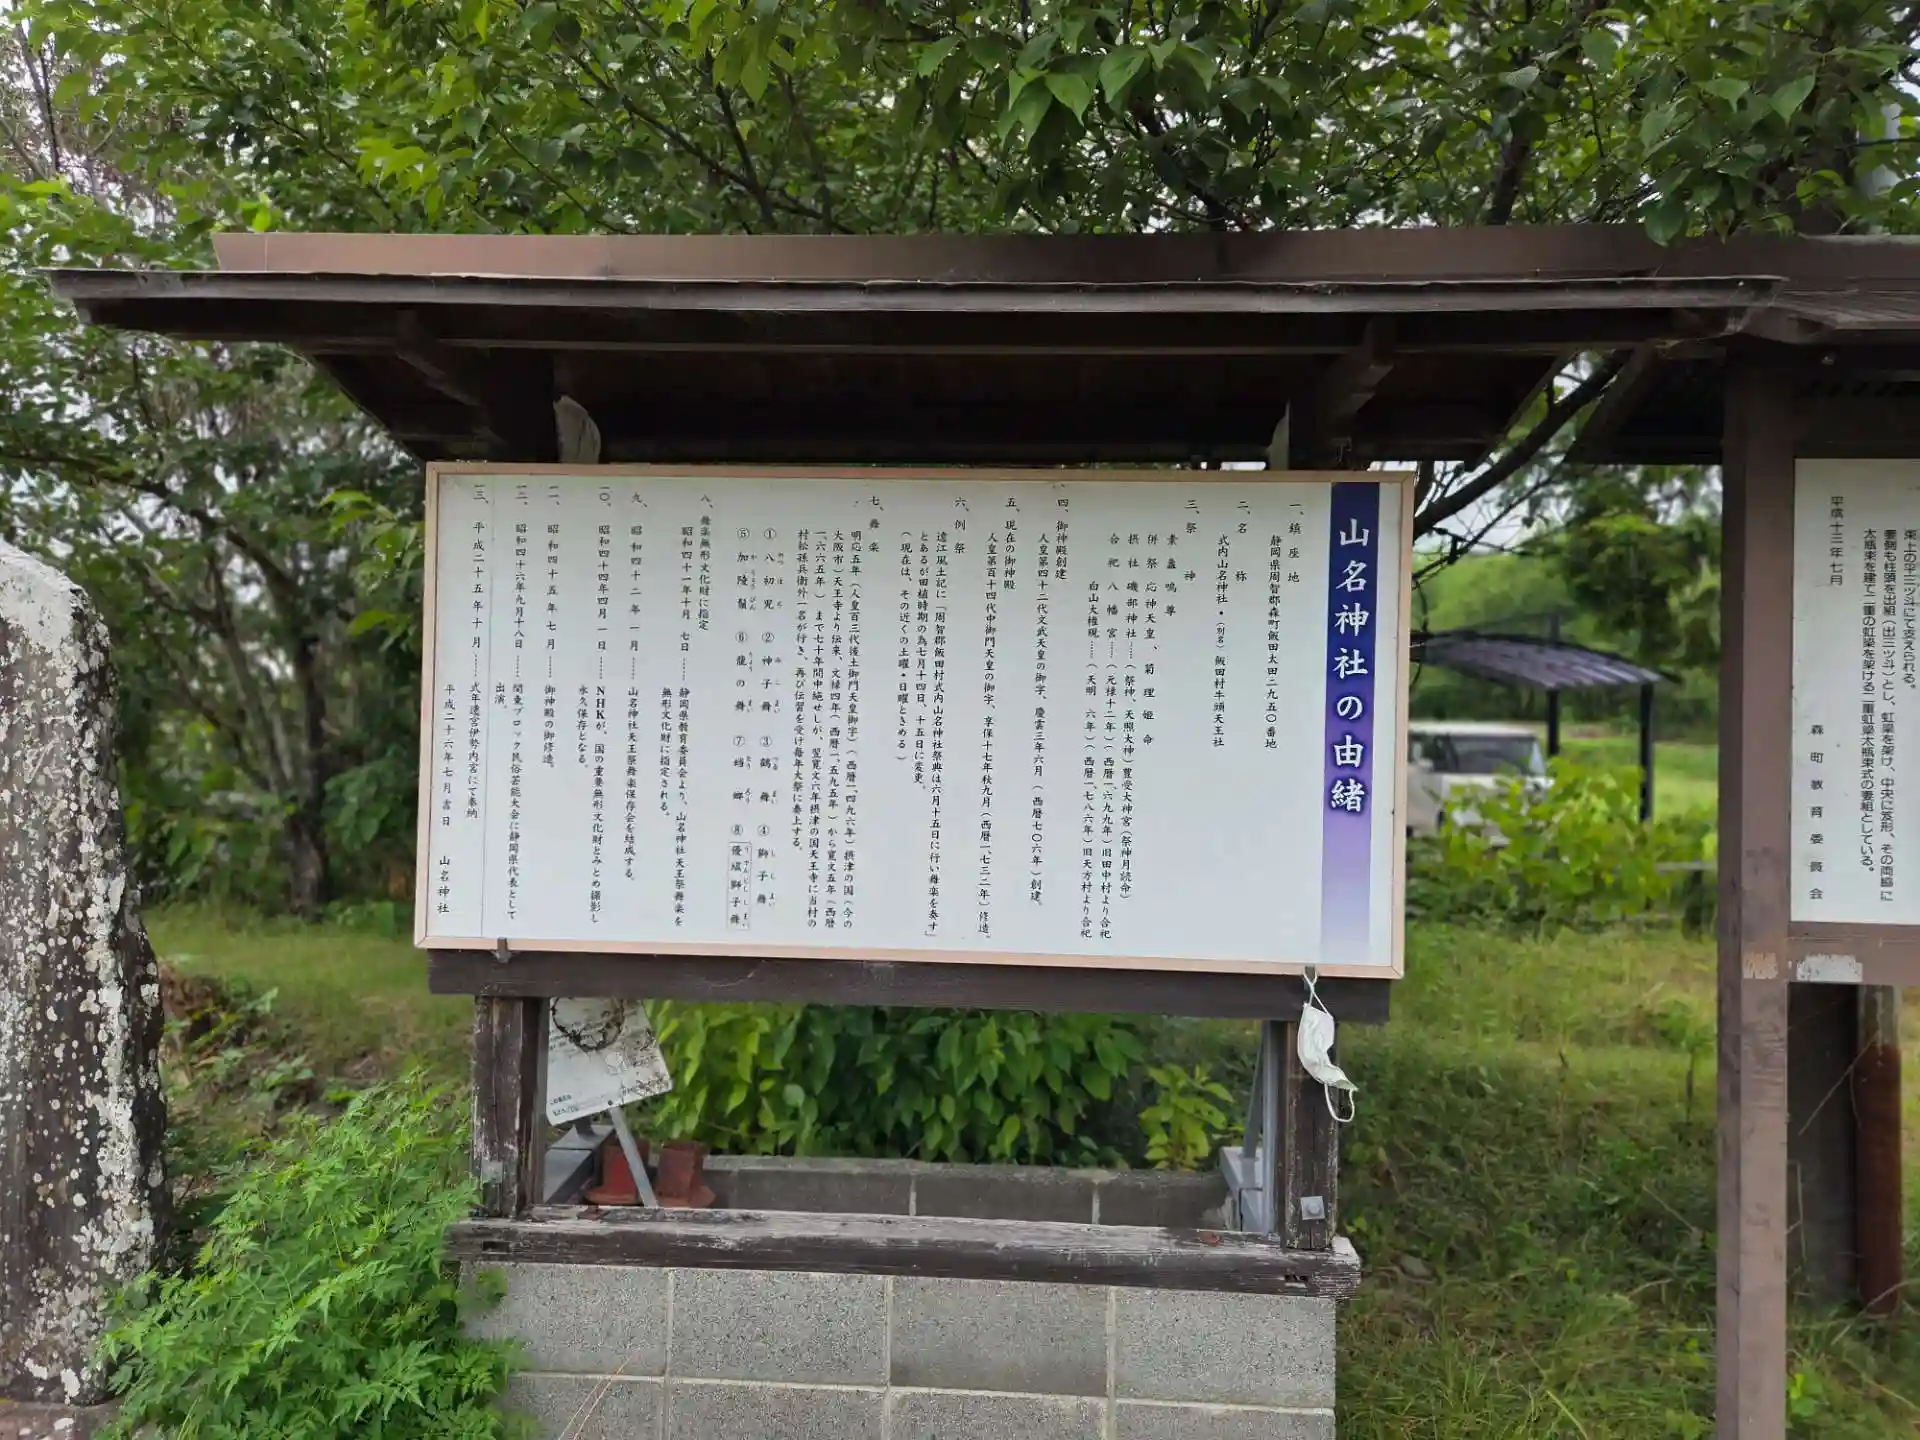 山名神社の由緒
一、鎮座地
静岡県周智郡森町飯田太田二九五〇番地
二、名称
式内山名神社・（別名）飯田村牛頭天王社
三、祭神
素盞嗚尊
併祭 応神天皇、菊理姫命
摂社 磯部神社……（祭神、天照大神）豊受大神宮（祭神月読命）
合祀 八幡宮……（元禄十二年）（西暦一、六九九年）旧田中村より合祀
白山大権現……（天明 六年）（西暦一、七八六年）旧天方村より合祀
四、御神殿創建
人皇第四十二代文武天皇の御字、慶雲三年六月（西暦七〇六年）創建。
五、現在の御神殿
人皇第百十四代中御門天皇の御字、享保十七年秋九月（西暦一、七三二年）修造。
六、例祭
遠江風土記に「周智郡飯田村式内山名神社祭典は六月十五日に行い舞楽を奏す」
とあるが田植時期の為七月十四日、十五日に変更。
（現在は、その近くの土曜・日曜ときめる）
七、舞楽
明応五年（人皇百三代後土御門天皇御字）（西暦一、四九六年）摂津の国（今の
大阪市）天王寺より伝来、文禄四年（西暦一、五九五年）から寛文五年（西暦
一、六六五年）まで七十年間中絶せしが、翌寛文六年摂津の国天王寺に当村の
村松孫兵衛外一名が行き、再び伝習を受け毎年大祭に奏上する。
①八初児 ②神子舞 ③鶴舞 ④獅子舞
⑤加陵鬢 ⑥龍の舞 ⑦蟷螂 ⑧優填獅子舞
八、舞楽無形文化財に指定
昭和四十一年十月 七日……静岡県教育委員会より、山名神社天王祭舞楽を
無形文化財に指定される。
九、昭和四十二年一月……山名神社天王祭舞楽保存会を結成する。
一〇、昭和四十四年四月一日……NHKが、国の重要無形文化財とみとめ撮影し
永久保存となる。
一一、昭和四十五年七月……御神殿の御修造。
一二、昭和四十六年九月十八日……関東ブロック民俗芸能大会に静岡県代表として
出演。
一三、平成二十五年十月……式年遷宮伊勢内宮にて奉納
平成二十六年七月吉日 山名神社
束上の平三ツ斗にて支えられる。
妻側も柱頭を出組（出三ツ斗）とし、虹梁を架け、中央に蟇形、その両脇に
太瓶束を建て二重の虹梁を架ける二重虹梁太瓶束式の妻組としている。
平成十三年七月
森町教育委員会